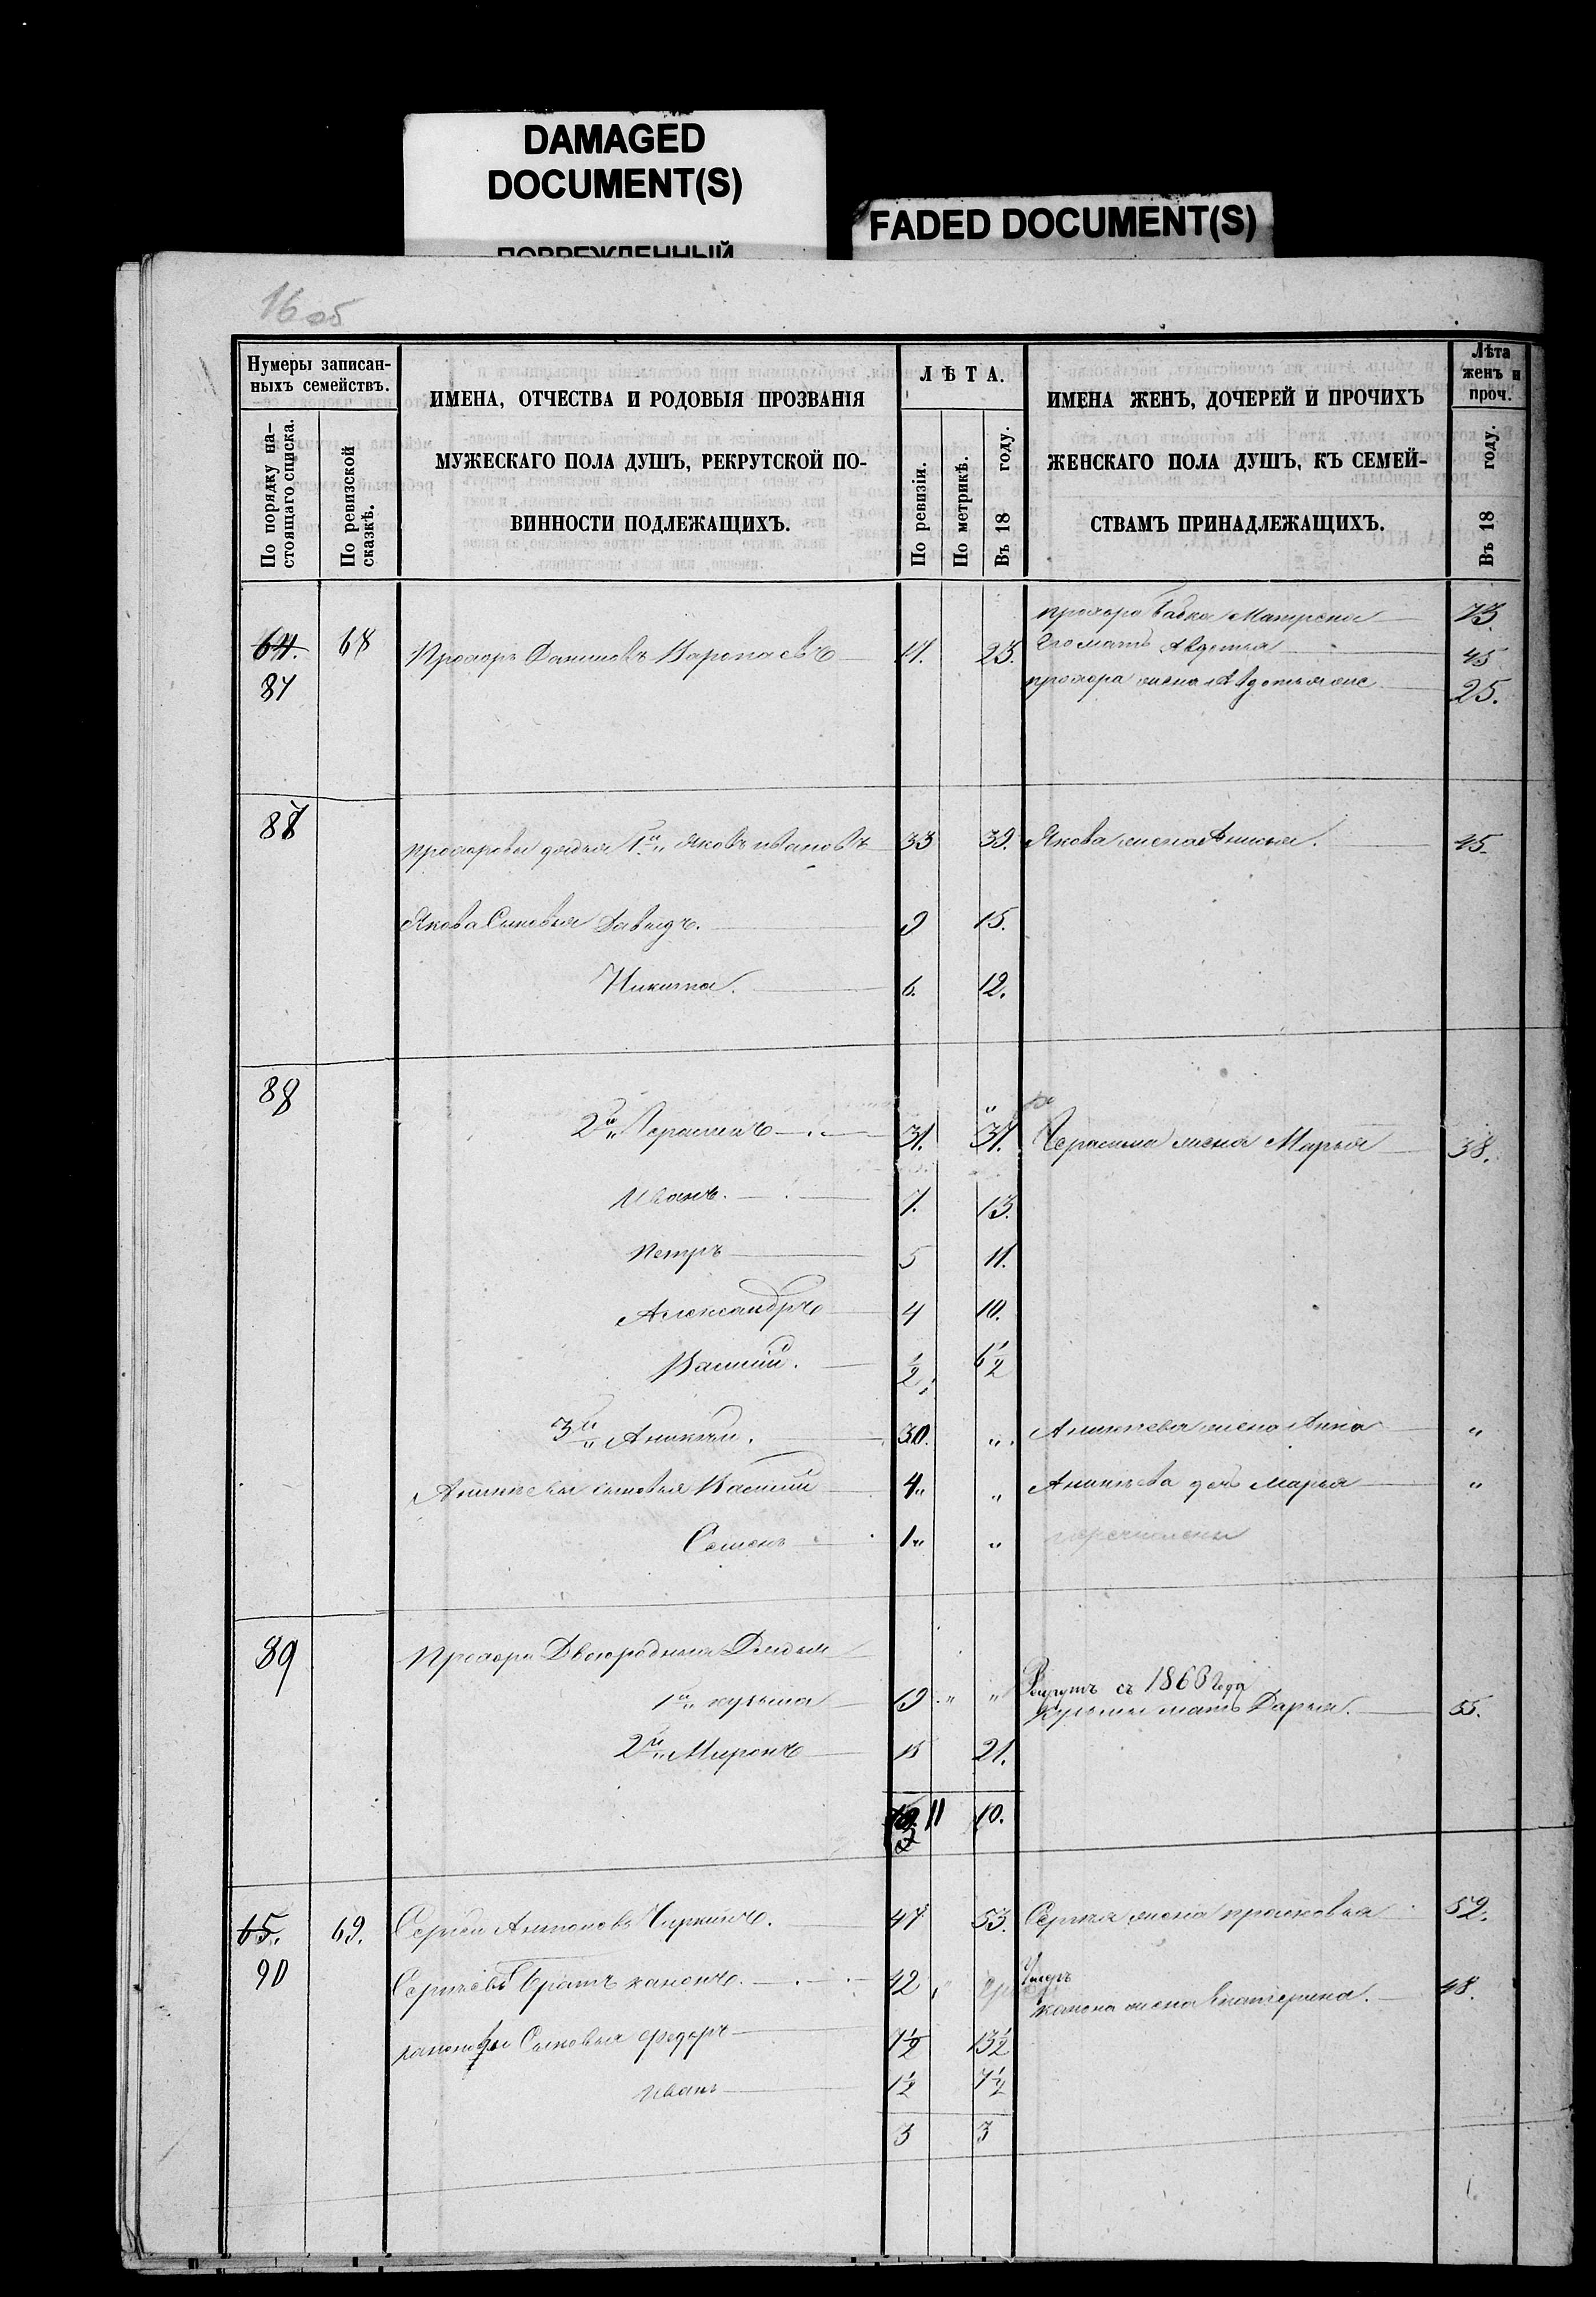 DAMAGED
DOCUMENT(S)
ПОВРЕЖДЕННЫЙ
FADED DOCUMENT(S)
16 об
Нумеры записан-
ныхъ семействъ.
По порядку на-
стоящаго списка.
По ревизской
сказкѣ.
ИМЕНА, ОТЧЕСТВА И РОДОВЫЯ ПРОЗВАНІЯ
МУЖЕСКАГО ПОЛА ДУШЪ, РЕКРУТСКОЙ ПО-
ВИННОСТИ ПОДЛЕЖАЩИХЪ.
ЛѢТА.
По ревизіи.
По метрикѣ.
Въ 18 году.
ИМЕНА ЖЕНЪ, ДОЧЕРЕЙ И ПРОЧИХЪ
ЖЕНСКАГО ПОЛА ДУШЪ, КЪ СЕМЕЙ-
СТВАМЪ ПРИНАДЛЕЖАЩИХЪ.
Лѣта
женъ и
проч.
Въ 18 году.
прохора бабка Матрена 73.
64. 68 Прохоръ Даниловъ Варопаевъ 17. 23. Его мать Авдотья 45
87 прохора жена Авдотья 25.
88 прохоровы дядья 1й Яковъ ивановъ 33 39. Якова жена Анисья. 45.
Якова Сыновья Давыдъ. 9 15.
Никита. 6. 12.
88 2й Герасимъ 31. 37. Герасима жена Марья 38.
Иванъ. 7. 13.
Петръ 5 11.
Александръ 4 10.
Василій. ½ 6½
3й Аникій. 30. „ Аникіева жена Анна „
Аникіевы сыновья Василій 4 „ Аникіева дочь Марья „
Семенъ 1 „ перечислены
89 Прохора Двоюродныя Дядья
1й кузьма 19 „ „ Рекрутъ съ 1863 года
кузьмы мать Дарья. 55.
2й Миронъ 15 21.
11 10.
65. 69. Сергѣй Антоновъ Чуркинъ. 47 53. Сергѣя жена прасковья 52.
90 Сергѣевъ братъ канонъ. 42 Умеръ
канона жена Екатерина. 48.
каноновы Сыновья федоръ 7½ 13½
Иванъ 1½ 7½
3 3